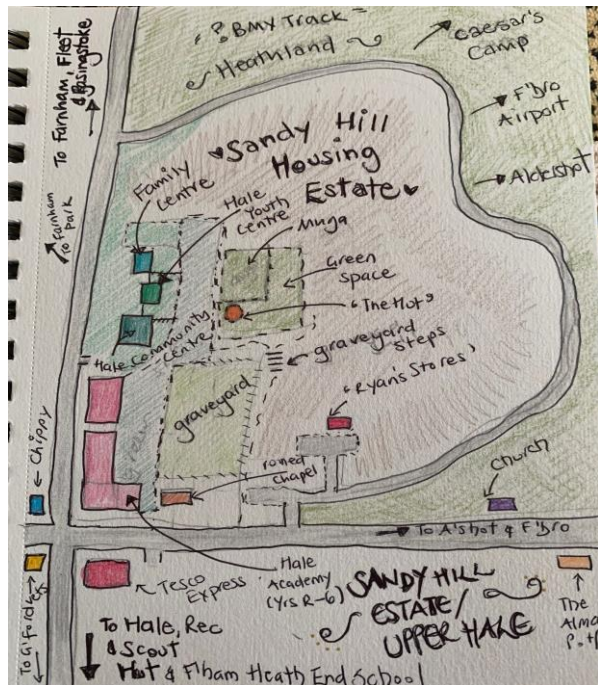 ? BMX Track
Heathland
Caesar's
Camp
F'Bro
Airport
Aldershot
To Farnham, Fleet
& Basingstoke
To Farnham
Park
Sandy Hill
Housing
Estate
Family
Centre
Hale
Youth
Centre
Muga
Green
Space
"The Hut"
graveyard
steps
Hale Community
Centre
"Ryan's Stores"
graveyard
ruined
chapel
Church
Chippy
To A'shot & F'Bro
Tesco
Express
Hale
Academy
(Yrs R-6)
SANDY HILL
ESTATE/
UPPER HALE
The
Alma
To Hale, Rec
& Scout
Hut & F'ham Heath End School